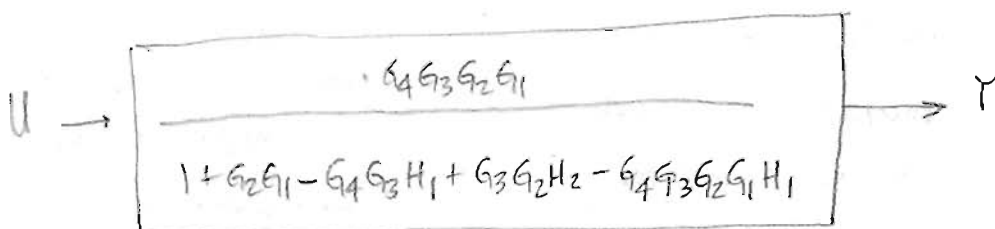 G₄G₃G₂G₁
U → Y
1 + G₂G₁ - G₄G₃H₁ + G₃G₂H₂ - G₄G₃G₂G₁H₁